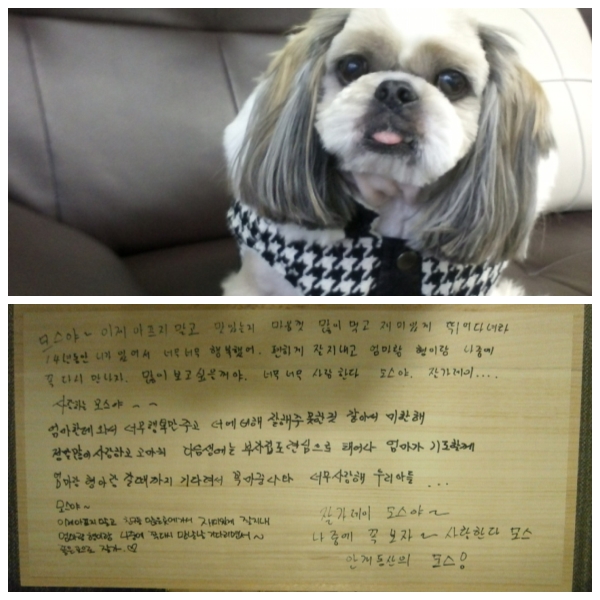 모스야~ 이제 아프지말고 맛있는거 마음껏 많이 먹고 재미있게 뛰어다녀라
14년동안 니가 있어서 너무너무 행복했어. 편하게 잘 지내고 엄마랑 형아랑 나중에
꼭 다시 만나자. 많이 보고싶을꺼야. 너무 너무 사랑한다 모스야. 잘가레이....
사랑하는 모스야~~
엄마한테 와서 너무행복만주고 너에 비해 잘해주 못한것 같아서 미안해
정말많이사랑하고 고마워 다음생에는 부자집도련님으로 태어나 엄마가 기도할께
엄마랑 형아랑 갈때까지 기다려서 꼭마중나와 너무사랑해 우리아들...
모스야~
이제아프지말고 잘지내
엄마랑 형아랑 나중에 꼭다시 만날날 기다리면서~
잘가. ♡
잘가레이 모스야~
나중에 꼭 보자~ 사랑한다 모스
모스